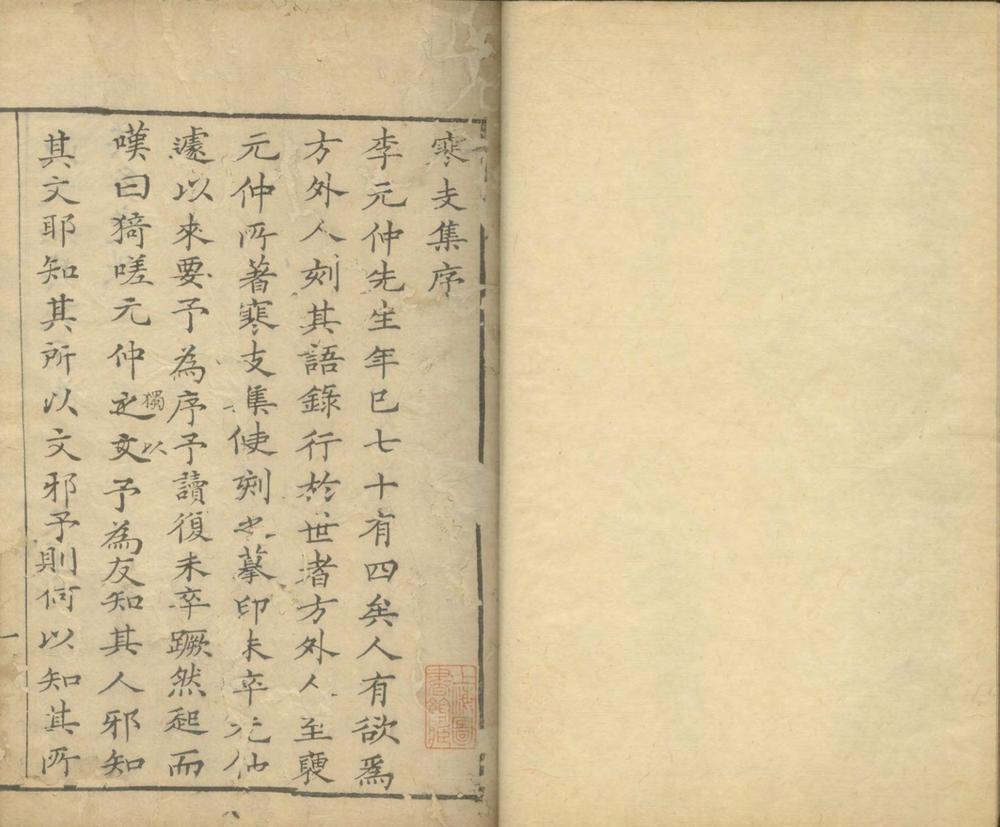 寒支集序
李元仲先生年已七十有四矣人有欲為
方外人刻其語錄行於世者方外人至裒
元仲所著寒支集使刻之摹印未卒元仲
遽以來要予為序予讀復未卒蹶然起而
嘆曰猗嗟元仲之文獨以予為友知其人邪知
其文耶知其所以文邪予則何以知其所
一
上海圖書館藏